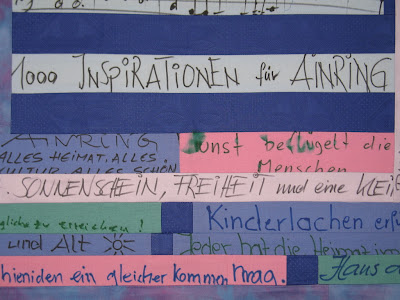 1000 INSPIRATIONEN für AINRING
AINRING
ALLES HEIMAT, ALLES
KULTUR, ALLES SCHÖN
Kunst beflügelt die
Menschen
SONNENSCHEIN, FREIHEIT und eine KLEI
gliche zu erreichen!
Kinderlachen erfü
und Alt
Jeder hat die Heimat im
hieniden ein gleicher komman mag.
Haus d